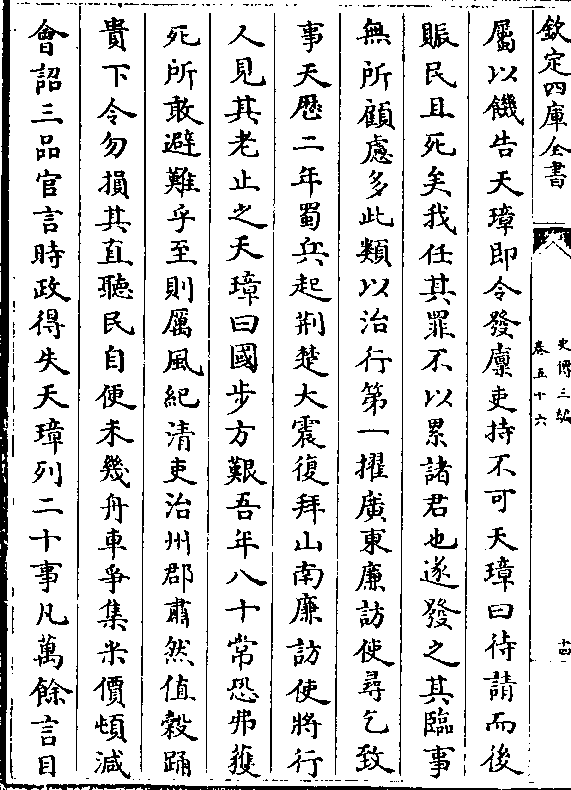 欽定四庫全書
史傳三編
卷五十六
十四
屬以饑告天璋即令發廪吏持不可天璋曰待請而後
賑民且死矣我任其罪不以累諸君也遂發之其臨事
無所顧慮多此類以治行第一擢廣東廉訪使尋乞致
事天歷二年蜀兵起荆楚大震復拜山南廉訪使將行
人見其老止之天璋曰國步方艱吾年八十常恐弗獲
死所敢避難乎至則厲風紀清吏治州郡肅然值穀踊
貴下令勿損其直聽民自便未幾舟車爭集米價頓減
會詔三品官言時政得失天璋列二十事凡萬餘言目